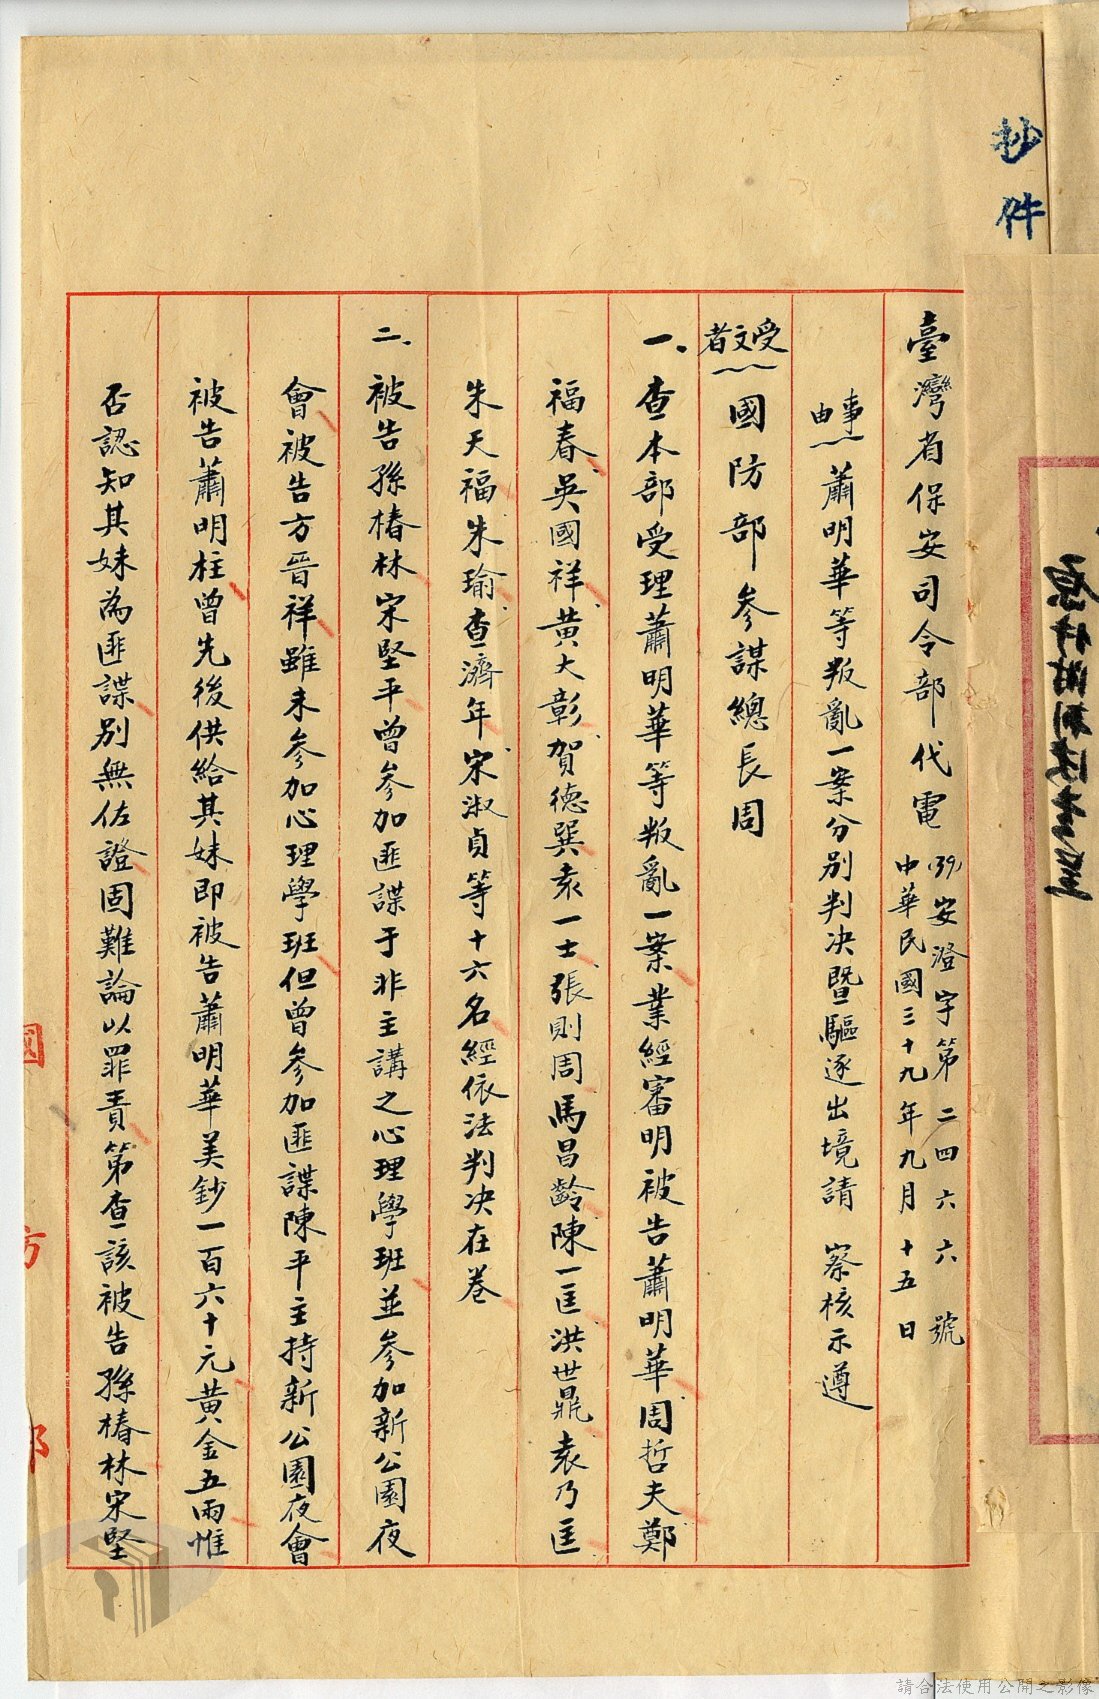 抄件
臺灣省保安司令部代電
(39)安澄字第二四六六號
中華民國三十九年九月十五日
事由 蕭明華等叛亂一案分別判决暨驅逐出境請 察核示遵
受文者 國防部參謀總長周
一、查本部受理蕭明華等叛亂一案業經審明被告蕭明華周哲夫鄭
福春吳國祥黃大彰賀德巽袁一士張則周馬昌齡陳一匡洪世鼎袁乃匡
朱天福朱瑜查濟年宋淑貞等十六名經依法判决在卷
二、被告孫椿林宋堅平曾參加匪諜于非主講之心理學班並參加新公園夜
會被告方晉祥雖未參加心理學班但曾參加匪諜陳平主持新公園夜會
被告蕭明柱曾先後供給其妹即被告蕭明華美鈔一百六十元黃金五両惟
否認知其妹為匪諜別無佐證固難論以罪責第查該被告孫椿林宋堅
國防部
請合法使用公開之影像